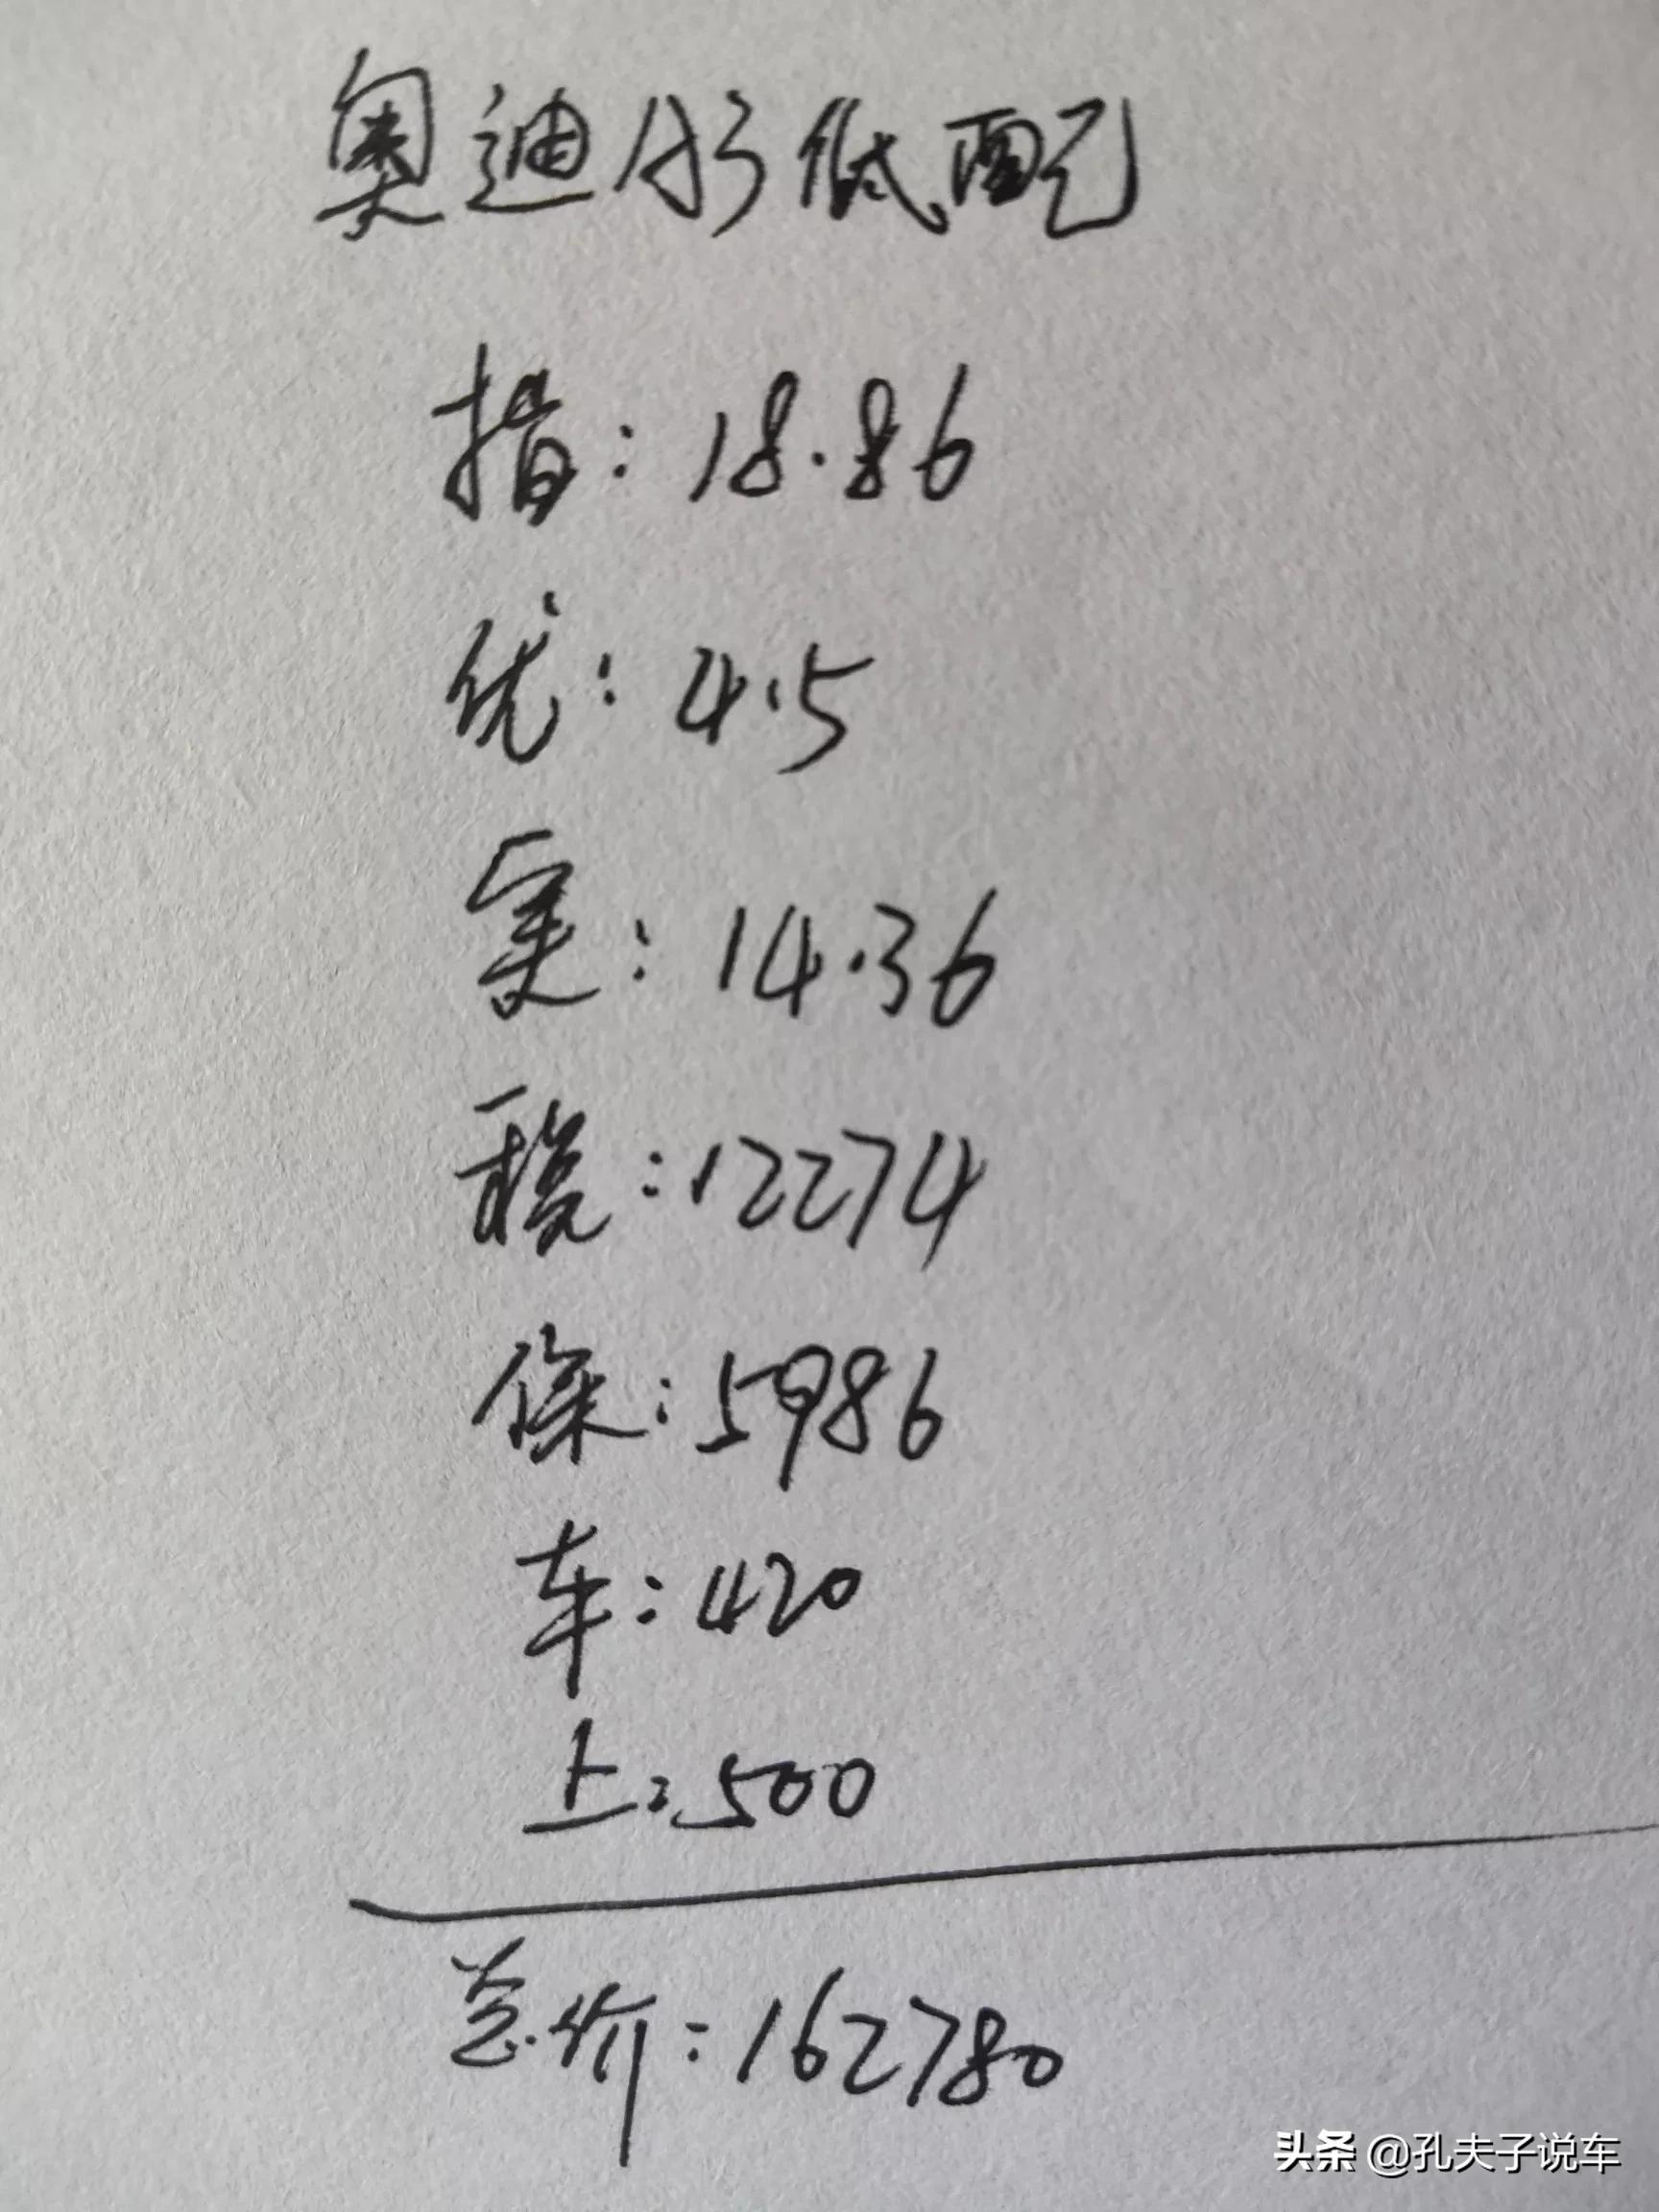 奥迪A3低配
指：18.86
优：4.5
实：14.36
税：12274
保：5986
车：420
上：500
总价：162780
头条 @孔夫子说车